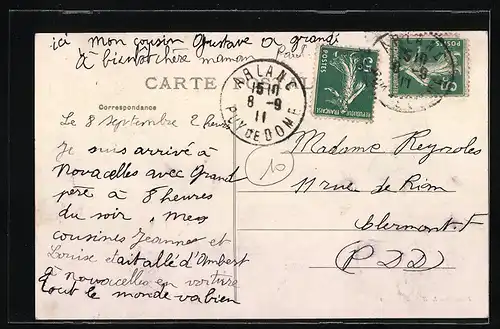 ici mon cousin Gustave a grandi
à bientôt chère maman
Paul
CARTE POSTALE
Correspondance
ARLANC
15 10
8 -9
11
PUY DE DOME
POSTES
REPUBLIQUE FRANÇAISE
5c
POSTES
Le 8 septembre 2 heures
Je suis arrivé à
Novacelles avec Grand
père à 8 heures
du soir. mes
cousines Jeanne et
Louise était allé d'Ambert
à Novacelles en voiture
tout le monde va bien
10
Madame Reyroles
11 rue de Riom
Clermont-F
(P.D.D)